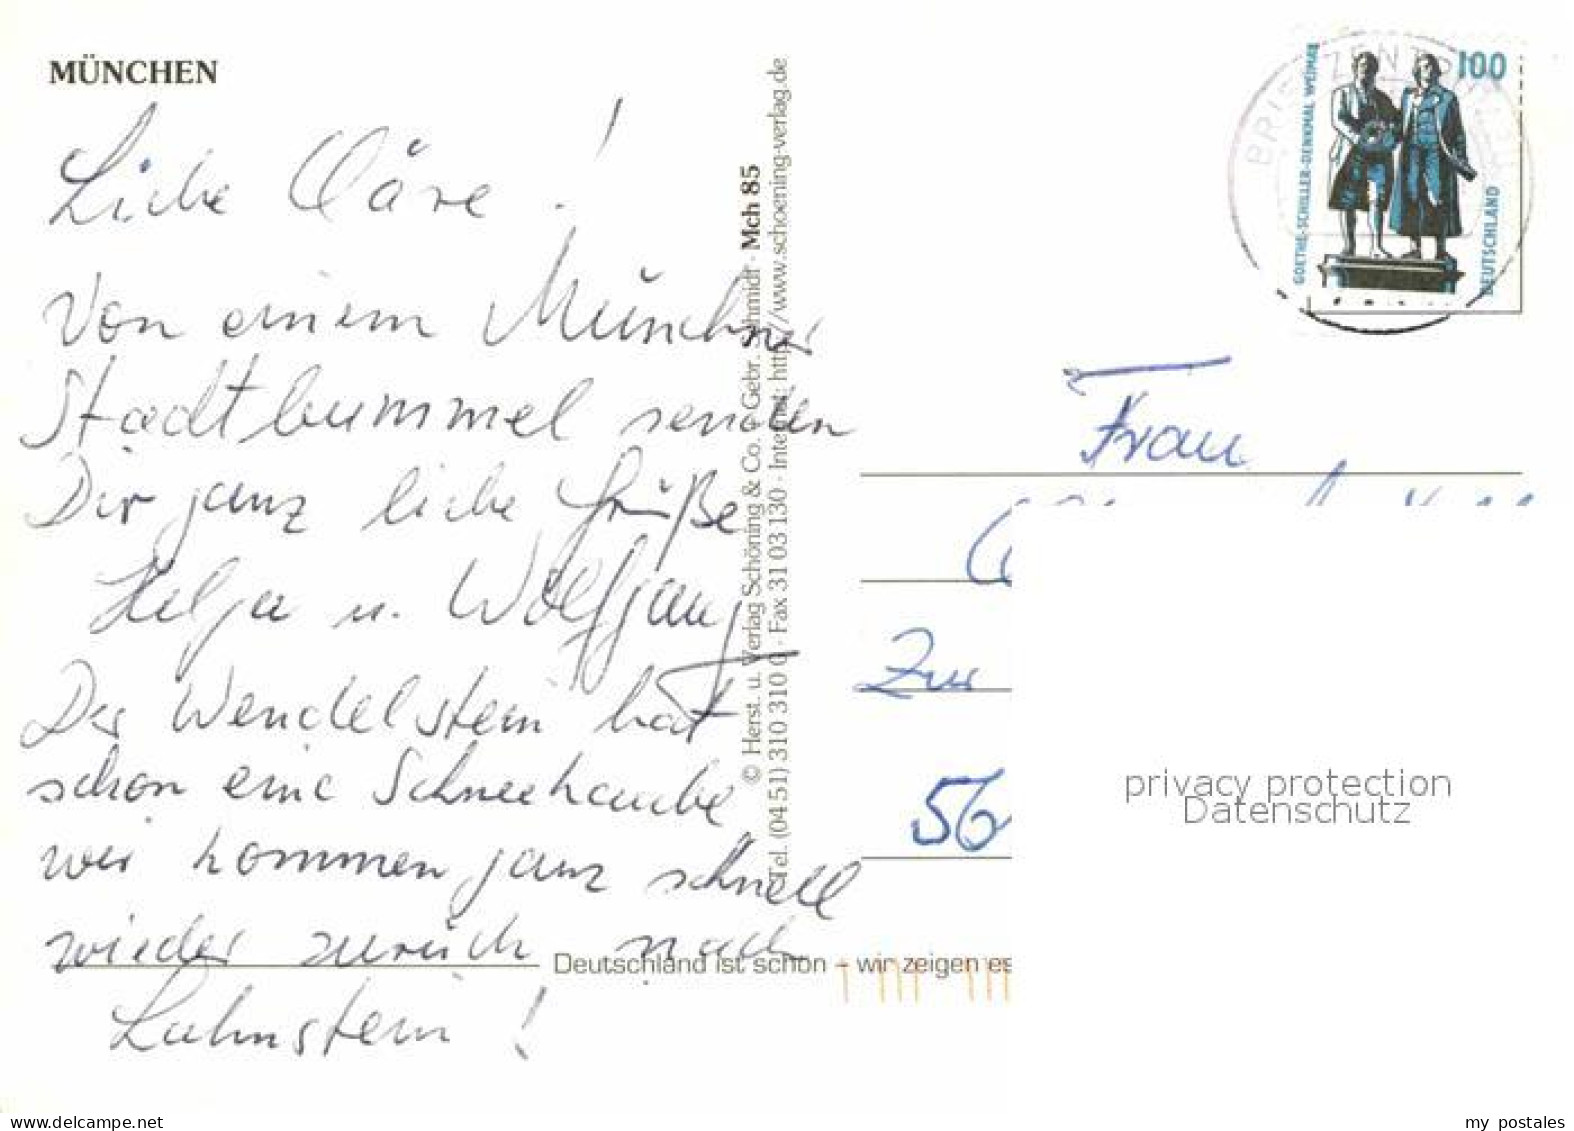 MÜNCHEN
Liebe Cläre !
Von einem Münchner
Stadtbummel senden
Dir ganz liebe Grüße
Helga u. Wolfgang
Der Wendelstein hat
schon eine Schneehaube
wir kommen ganz schnell
wieder zurück nach
Lahnstein !
© Herst. u. Verlag Schöning & Co. + Gebr. Schmidt · Mch 85
Tel. (04 51) 310 310 0 · Fax 31 03 130 · Internet: http://www.schoening-verlag.de
Deutschland ist schön – wir zeigen es
GOETHE-SCHILLER-DENKMAL WEIMAR
100
DEUTSCHLAND
BRIEFZENTRUM
Frau
Zur
56
privacy protection
Datenschutz
my postales